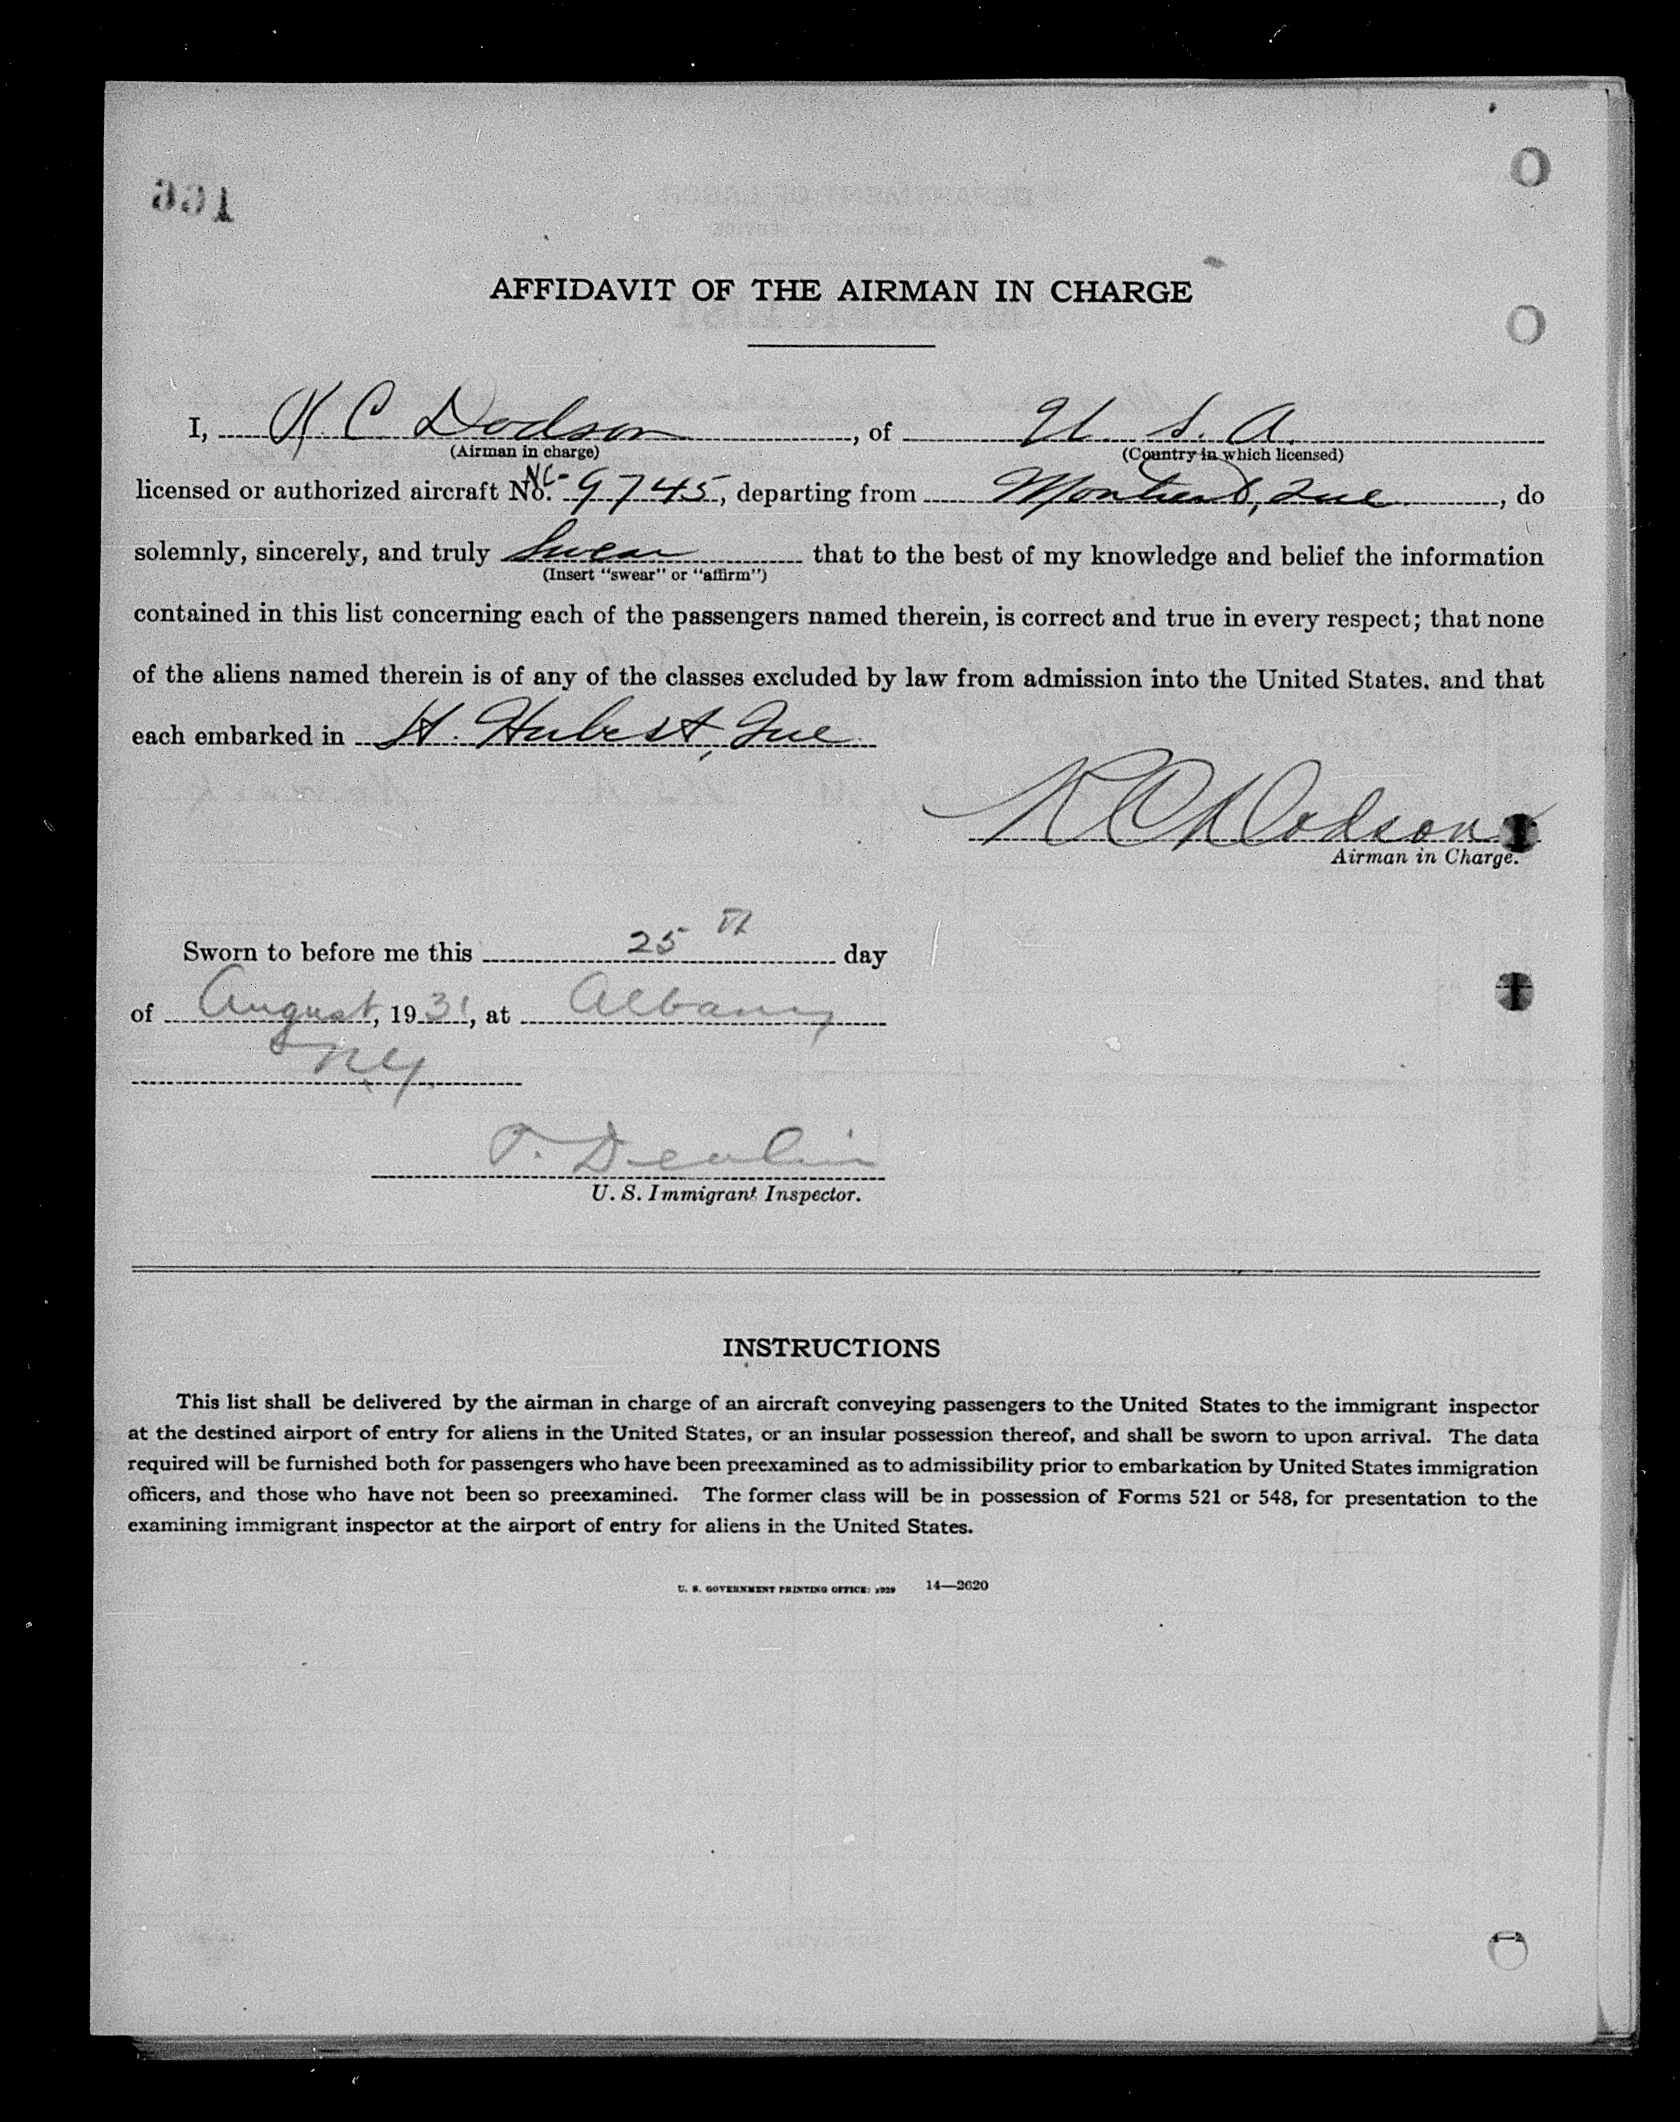 AFFIDAVIT OF THE AIRMAN IN CHARGE
I, K. C. Dodson, of U. S. A.
(Airman in charge) (Country in which licensed)
licensed or authorized aircraft No. NC- 9745, departing from Montreal, Que., do
solemnly, sincerely, and truly Swear that to the best of my knowledge and belief the information
(Insert "swear" or "affirm")
contained in this list concerning each of the passengers named therein, is correct and true in every respect; that none
of the aliens named therein is of any of the classes excluded by law from admission into the United States, and that
each embarked in St. Hubert, Que.
K C Dodson
Airman in Charge.
Sworn to before me this 25th day
of August, 1931, at Albany
N.Y.
T. Devlin
U. S. Immigrant Inspector.
INSTRUCTIONS
This list shall be delivered by the airman in charge of an aircraft conveying passengers to the United States to the immigrant inspector
at the destined airport of entry for aliens in the United States, or an insular possession thereof, and shall be sworn to upon arrival. The data
required will be furnished both for passengers who have been preexamined as to admissibility prior to embarkation by United States immigration
officers, and those who have not been so preexamined. The former class will be in possession of Forms 521 or 548, for presentation to the
examining immigrant inspector at the airport of entry for aliens in the United States.
U. S. GOVERNMENT PRINTING OFFICE: 1929 14—2620